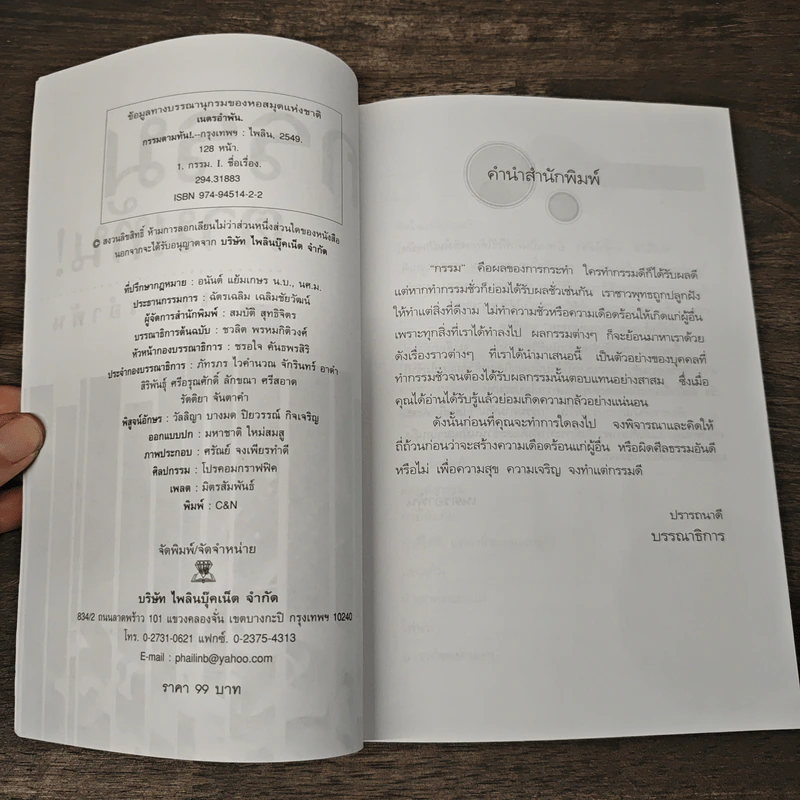 ข้อมูลทางบรรณานุกรมของหอสมุดแห่งชาติ
เนตรอำพัน.
กรรมตามทัน!.--กรุงเทพฯ : ไพลิน, 2549.
128 หน้า.
1. กรรม. I. ชื่อเรื่อง.
294.31883
ISBN 974-94514-2-2
© สงวนลิขสิทธิ์ ห้ามการลอกเลียนไม่ว่าส่วนหนึ่งส่วนใดของหนังสือ
นอกจากจะได้รับอนุญาตจาก บริษัท ไพลินบุ๊คเน็ต จำกัด
ที่ปรึกษากฎหมาย : อนันต์ แย้มเกษร น.บ., นศ.ม.
ประธานกรรมการ : ฉัตรเฉลิม เฉลิมชัยวัฒน์
ผู้จัดการสำนักพิมพ์ : สมบัติ สุทธิจิตร
บรรณาธิการต้นฉบับ : ชวลิต พรหมกิติวงศ์
หัวหน้ากองบรรณาธิการ : ชรอใจ คันธพรสิริ
ประจำกองบรรณาธิการ : ภัทรภร ไวคำนวณ จักรินทร์ อาดำ
สิริพันธุ์ ศรีอรุณศักดิ์ ลักขณา ศรีสอาด
รัตติยา จันตาคำ
พิสูจน์อักษร : วัลลิญา บางมด ปิยวรรณ์ กิจเจริญ
ออกแบบปก : มหาชาติ ใหม่สมสู
ภาพประกอบ : ศรัณย์ จงเพียรทำดี
ศิลปกรรม : โปรคอมกราฟฟิค
เพลต : มิตรสัมพันธ์
พิมพ์ : C&N
จัดพิมพ์/จัดจำหน่าย
บริษัท ไพลินบุ๊คเน็ต จำกัด
834/2 ถนนลาดพร้าว 101 แขวงคลองจั่น เขตบางกะปิ กรุงเทพฯ 10240
โทร. 0-2731-0621 แฟกซ์. 0-2375-4313
E-mail : phailinb@yahoo.com
ราคา 99 บาท
คำนำสำนักพิมพ์
"กรรม" คือผลของการกระทำ ใครทำกรรมดีก็ได้รับผลดี
แต่หากทำกรรมชั่วก็ย่อมได้รับผลชั่วเช่นกัน เราชาวพุทธถูกปลูกฝัง
ให้ทำแต่สิ่งที่ดีงาม ไม่ทำความชั่วหรือความเดือดร้อนให้เกิดแก่ผู้อื่น
เพราะทุกสิ่งที่เราได้ทำลงไป ผลกรรมต่างๆ ก็จะย้อนมาหาเราด้วย
ดังเรื่องราวต่างๆ ที่เราได้นำมาเสนอนี้ เป็นตัวอย่างของบุคคลที่
ทำกรรมชั่วจนต้องได้รับผลกรรมนั้นตอบแทนอย่างสาสม ซึ่งเมื่อ
คุณได้อ่านได้รับรู้แล้วย่อมเกิดความกลัวอย่างแน่นอน
ดังนั้นก่อนที่คุณจะทำการใดลงไป จงพิจารณาและคิดให้
ถี่ถ้วนก่อนว่าจะสร้างความเดือดร้อนแก่ผู้อื่น หรือผิดศีลธรรมอันดี
หรือไม่ เพื่อความสุข ความเจริญ จงทำแต่กรรมดี
ปรารถนาดี
บรรณาธิการ